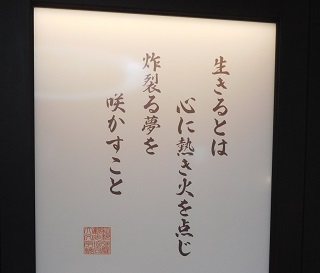 生きるとは
心に熱き火を点じ
炸裂る夢を
咲かすこと